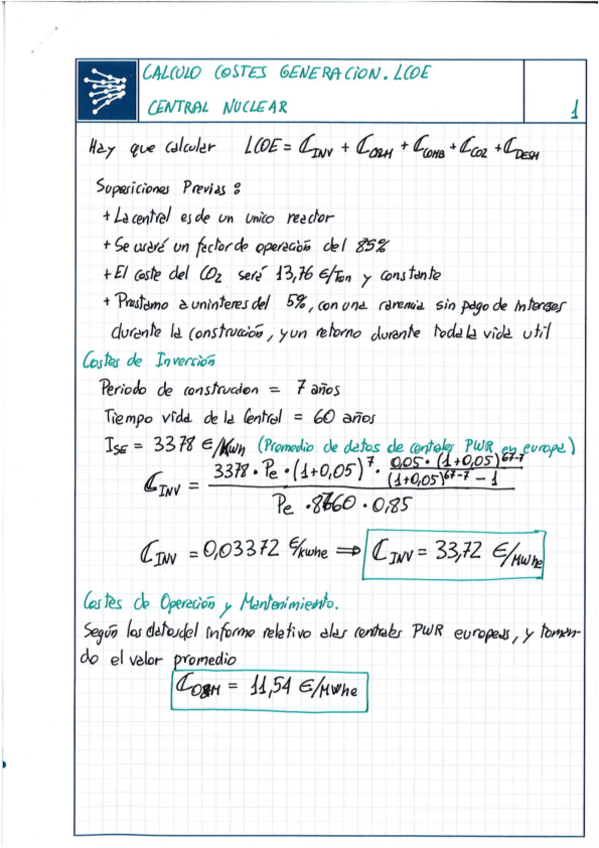 CALCULO COSTES GENERACION. LCOE
CENTRAL NUCLEAR
1
Hay que calcular LCOE = C_INV + C_O&M + C_COMB + C_CO2 + C_DESH
Suposiciones Previas:
+ La central es de un unico reactor
+ Se usará un factor de operación del 85%
+ El coste del CO2 será 13,76 €/Ton y constante
+ Prestamo a un interes del 5%, con una carencia sin pago de intereses
durante la construcción, y un retorno durante toda la vida util
Costes de Inversión
Periodo de construcion = 7 años
Tiempo vida de la Central = 60 años
I_SE = 3378 €/Kwh (Promedio de datos de centrales PWR en europa)
C_INV = (3378 · Pe · (1+0,05)^7 · (0,05 · (1+0,05)^67-7) / ((1+0,05)^67-7 - 1)) / (Pe · 8760 · 0,85)
C_INV = 0,03372 €/kwhe ⇒ C_INV = 33,72 €/Mwhe
Costes de Operación y Mantenimiento.
Según los datos del informe relativo a las centrales PWR europeas, y toman-
do el valor promedio
C_O&M = 11,54 €/MWhe